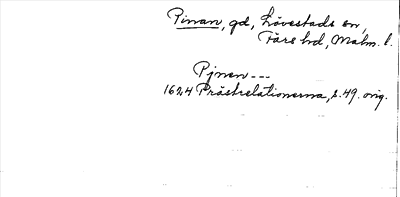 Pinan, gd, Lövestads sn,
Färs hd, Malm. l.
Pjnen ---
1624 Prästrelationerna, s. 49. orig.